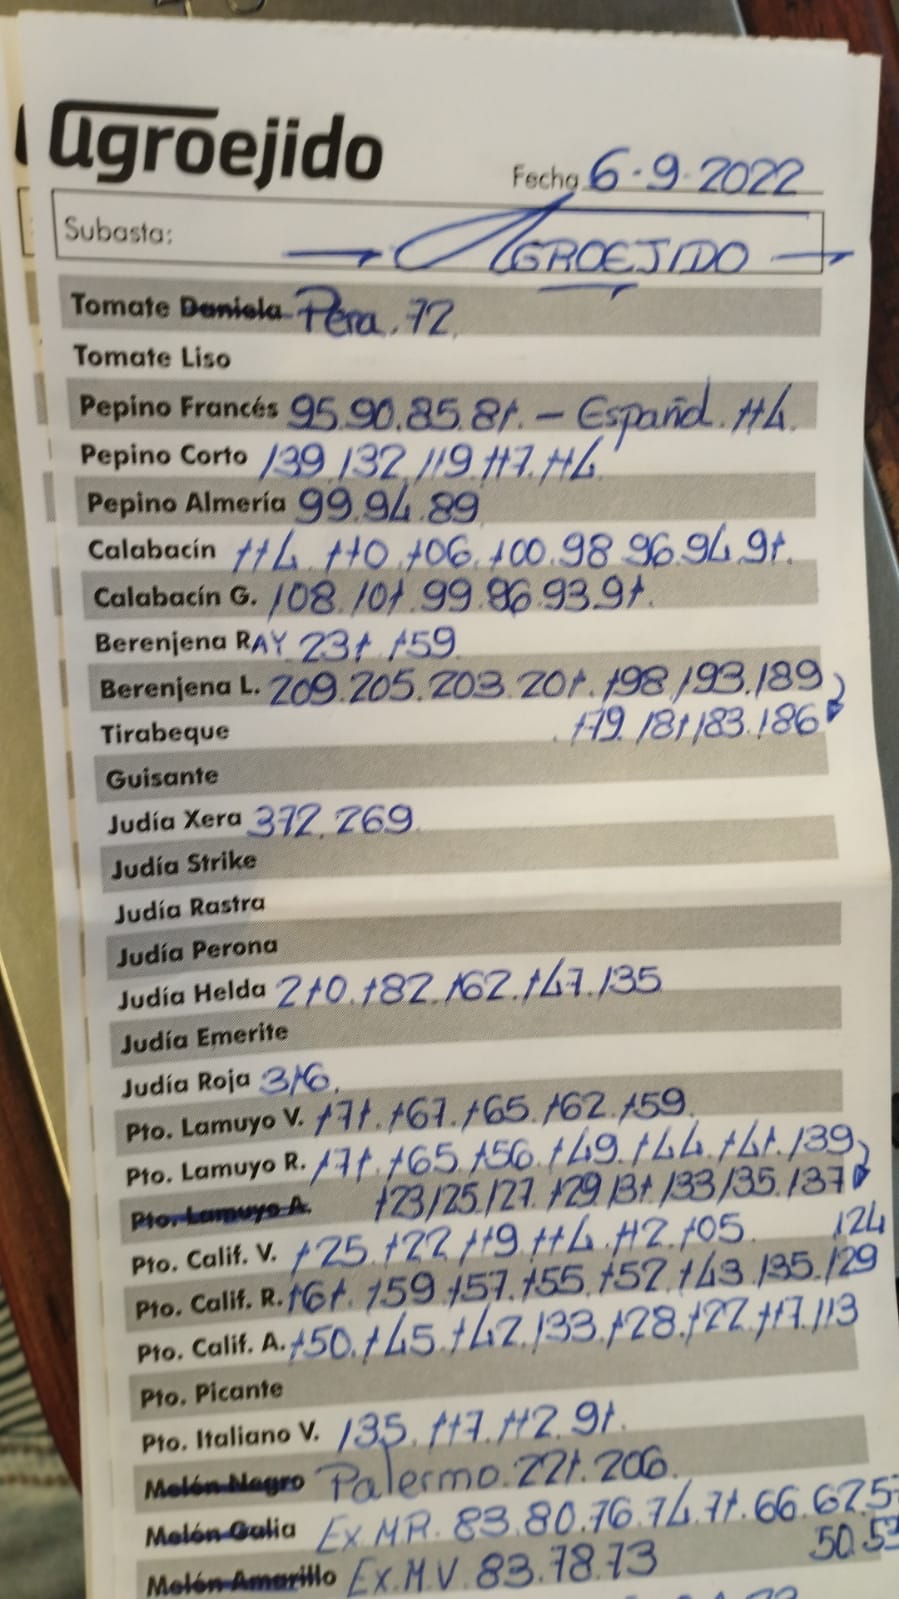 agroejido
Fecha 6.9.2022
Subasta: AGROEJIDO
Tomate Daniela Pera. 72.
Tomate Liso
Pepino Francés 95.90.85.81. - Español. 114.
Pepino Corto 139.132.119.117.114
Pepino Almería 99.94.89
Calabacín 114.110.106.100.98.96.94.91.
Calabacín G. 108.101.99.96.93.91.
Berenjena RAY 231.159
Berenjena L. 209.205.203.201.198.193.189
Tirabeque 179.181.183.186
Guisante
Judía Xera 372.269
Judía Strike
Judía Rastra
Judía Perona
Judía Helda 210.182.162.147.135
Judía Emerite
Judía Roja 316.
Pto. Lamuyo V. 171.167.165.162.159
Pto. Lamuyo R. 171.165.156.149.144.141.139
Pto. Lamuyo A. 123.125.127.129.131.133.135.137
Pto. Calif. V. 125.122.119.114.112.105. 124
Pto. Calif. R. 161.159.157.155.152.143.135.129
Pto. Calif. A. 150.145.142.133.128.122.117.113
Pto. Picante
Pto. Italiano V. 135.117.112.91.
Melón Negro Palermo. 221.206.
Melón Galia Ex.M.R. 83.80.76.74.71.66.62.5
50.5
Melón Amarillo Ex.M.V. 83.78.73